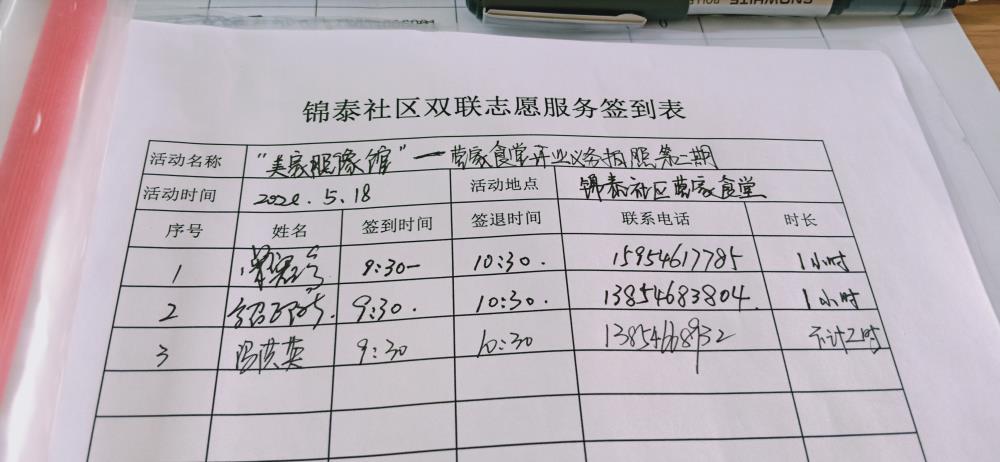 SNOWHITE
锦泰社区双联志愿服务签到表
活动名称 "美家照像馆"一 食堂开业义务拍照第二期
活动时间 2020.5.18 活动地点 锦泰社区 食堂
序号 姓名 签到时间 签退时间 联系电话 时长
1 9:30- 10:30. 15954617785 1小时
2 9:30. 10:30. 13854683804. 1小时
3 冯英英 9:30 10:30 13854668932 不计工时